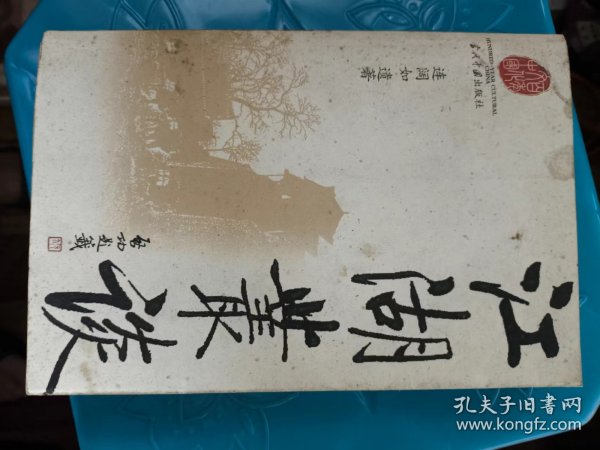 HUNDRED-YEAR CULTURAL
CHINA
当代中国出版社
连阔如遗著
江湖叢谈
启功题籤
孔夫子旧书网
www.kongfz.com